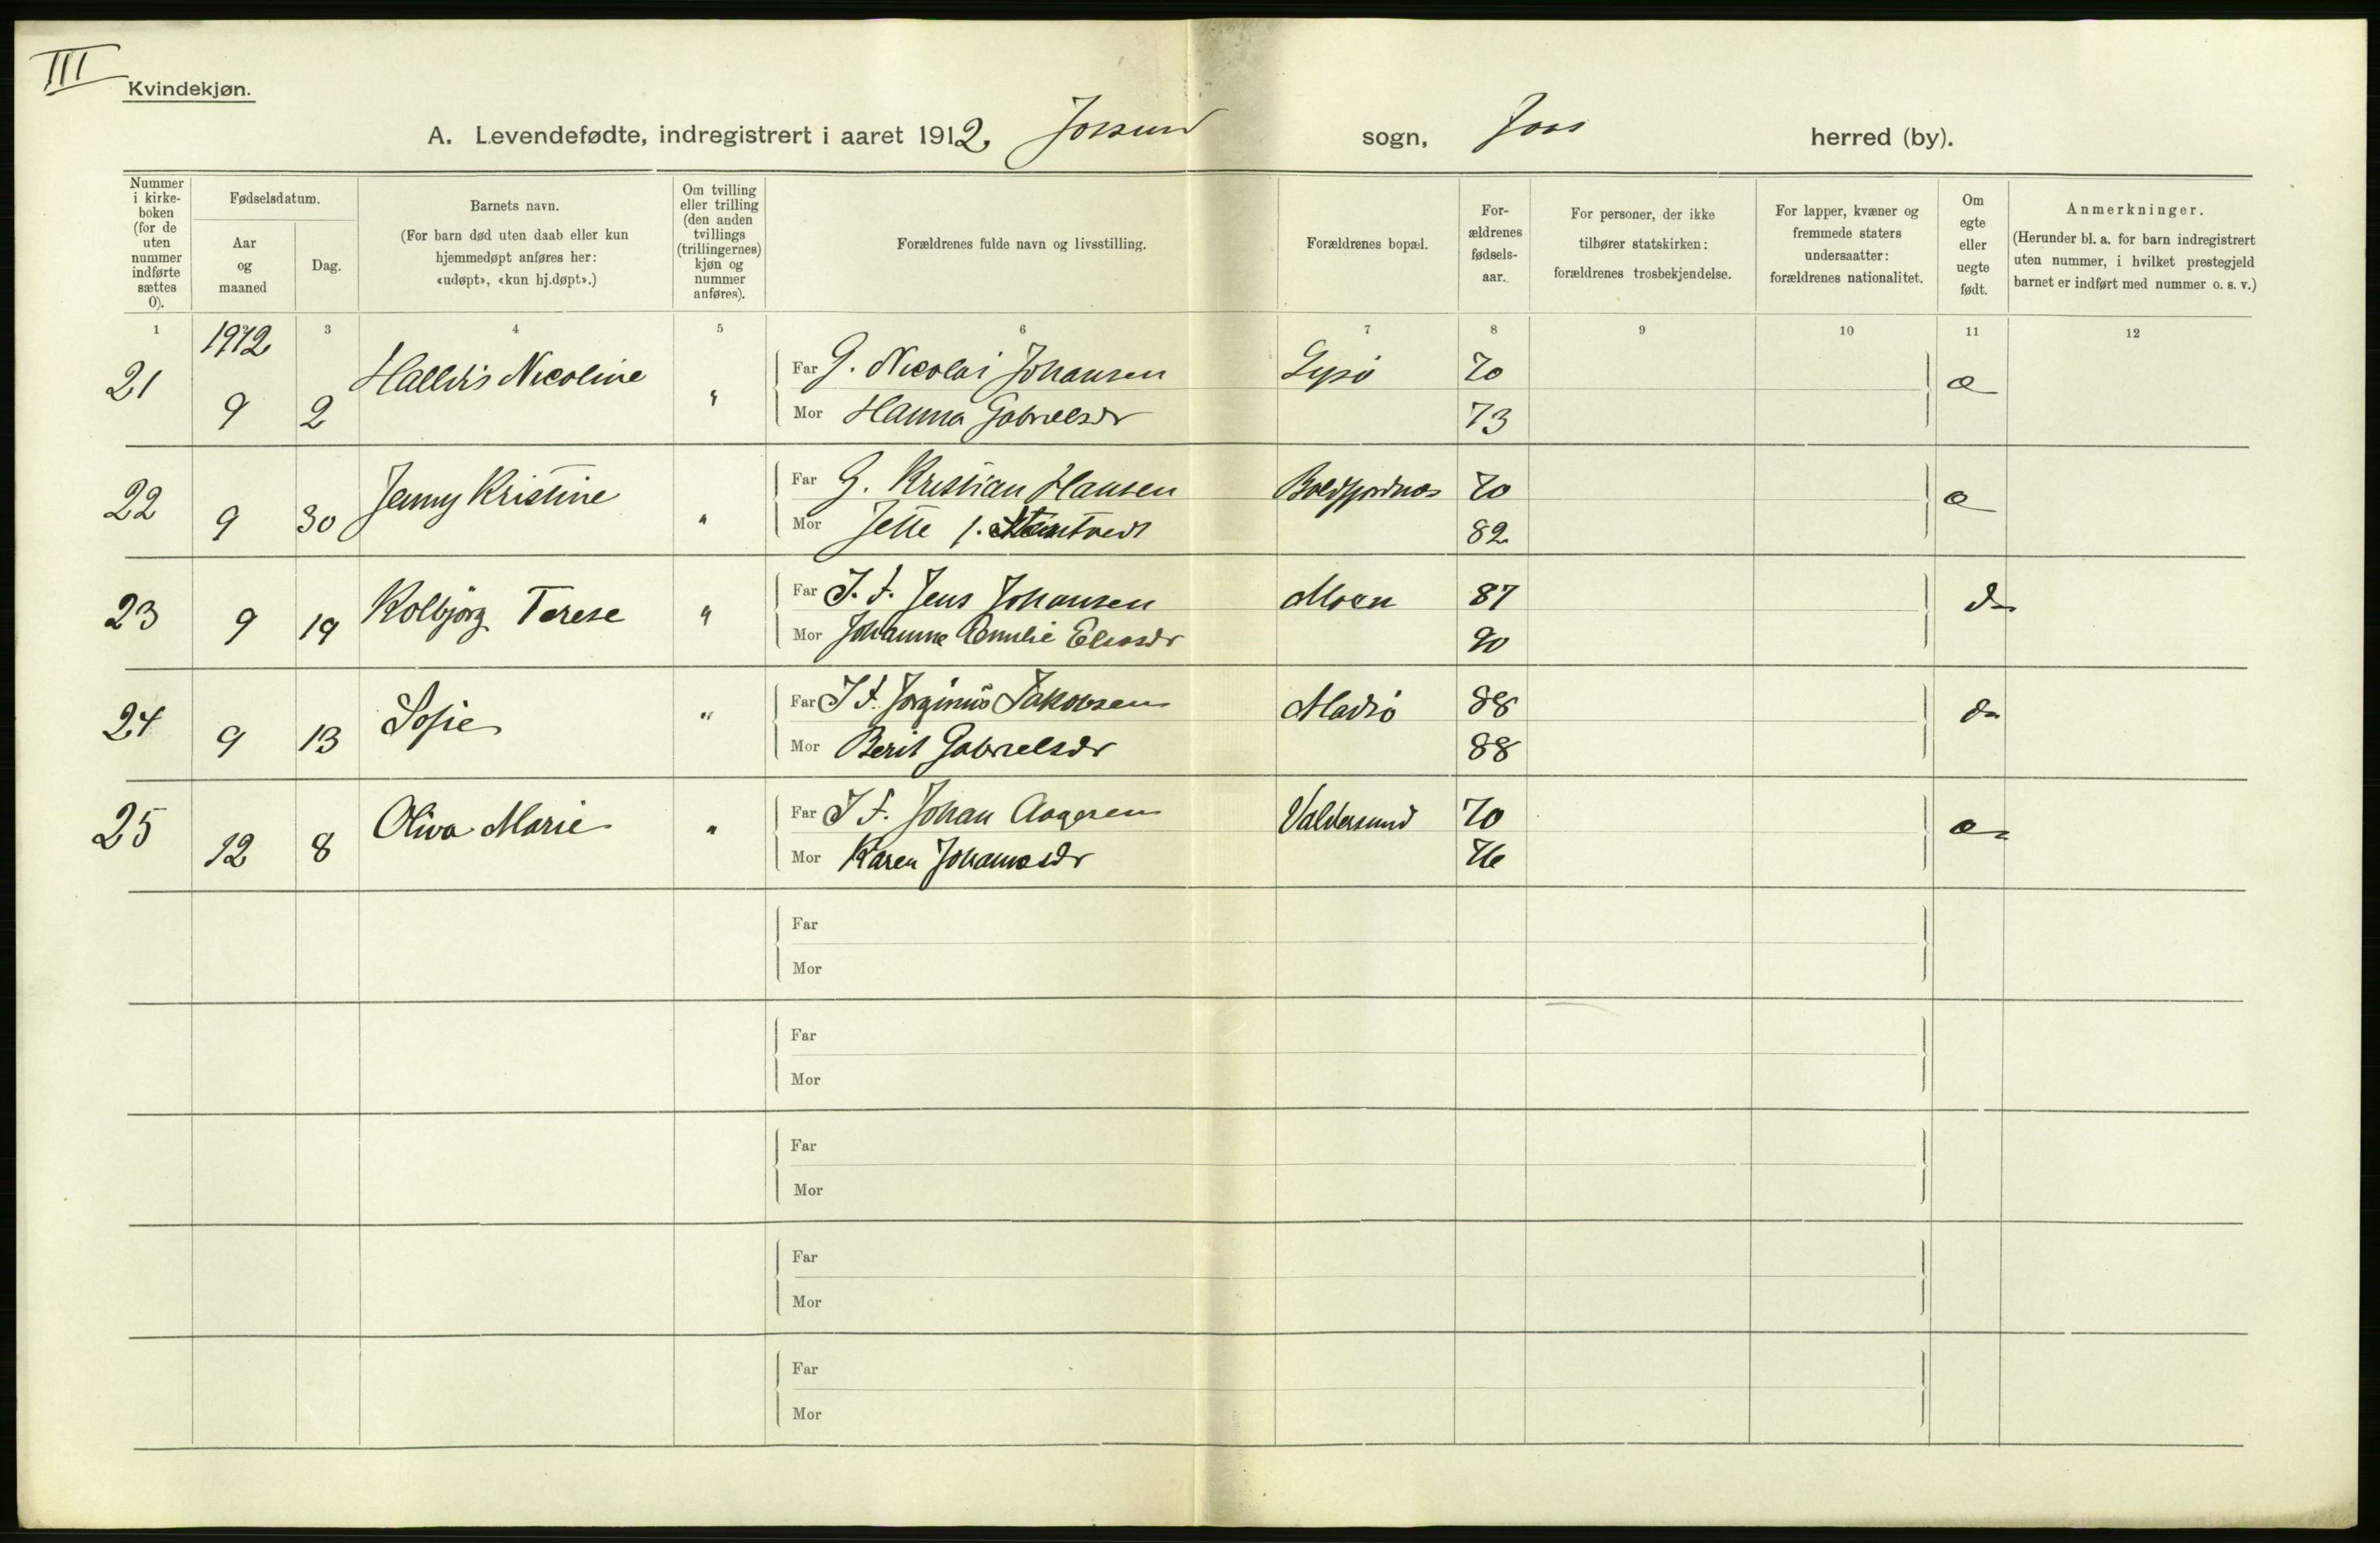 III
Kvindekjøn.
A. Levendefødte, indregistrert i aaret 1912. Jossund sogn, Joss herred (by).
Nummer i kirkeboken (for de uten nummer indførte sættes 0).
Fødselsdatum.
Aar og maaned
Dag.
Barnets navn.
(For barn død uten daab eller kun
hjemmedøpt anføres her:
«udøpt», «kun hj.døpt».)
Om tvilling
eller trilling
(den anden
tvillings
(trillingernes)
kjøn og
nummer
anføres).
Forældrenes fulde navn og livsstilling.
Forældrenes bopæl.
For-
ældrenes
fødsels-
aar.
For personer, der ikke
tilhører statskirken:
forældrenes trosbekjendelse.
For lapper, kvæner og
fremmede staters
undersaatter:
forældrenes nationalitet.
Om
egte
eller
uegte
født.
Anmerkninger.
(Herunder bl. a. for barn indregistrert
uten nummer, i hvilket prestegjeld
barnet er indført med nummer o. s. v.)
1 3 4 5 6 7 8 9 10 11 12
1912
21 9 2 Halldis Nicoline " Far G. Nicolai Johansen Lysö 70 æ
Mor Hanna Gabrielsdr 73
22 9 30 Jenny Kristine " Far G. Kristian Hansen 70 æ
Mor Jette 82
23 9 19 Kolbjörg Terese " Far J. f. Jens Johansen Moen 87 do
Mor Johanne Emilie Eliasdr 90
24 9 13 Sofie " Far J f. Jörginus Jakobsen Madsö 88 do
Mor Berit Gabrielsdr 88
25 12 8 Oliva Marie " Far J f. Johan Aagesen Valdersund 70 æ
Mor Karen Johansdr 76
Far
Mor
Far
Mor
Far
Mor
Far
Mor
Far
Mor